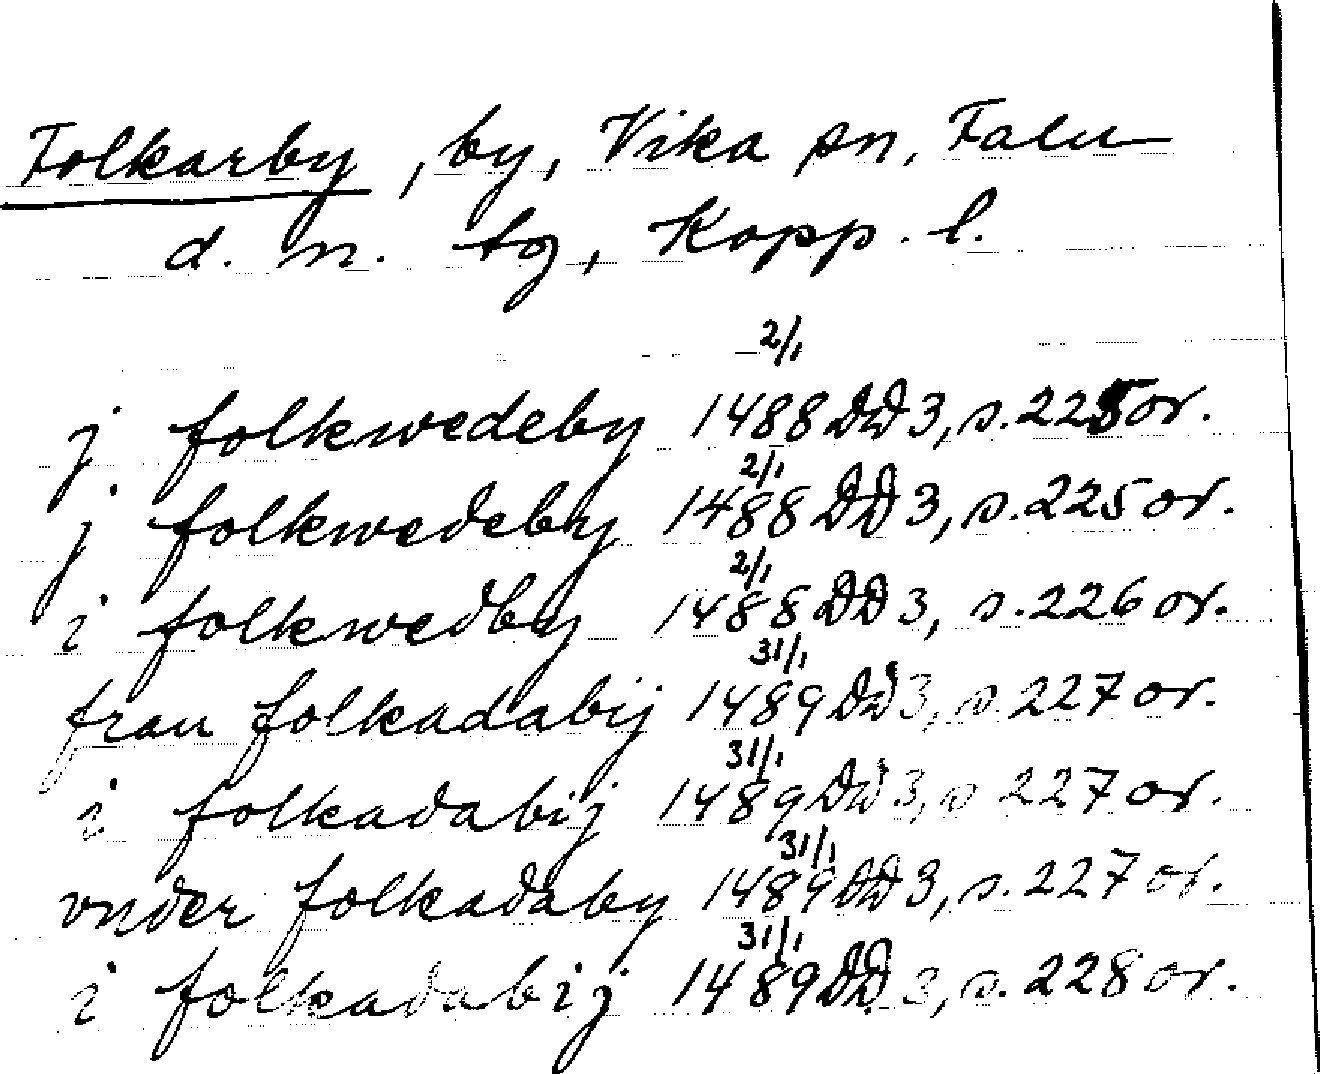 Folkarby, by, Vika sn, Falu
d. n. tg, Kopp. l.
j folkwedeby 2/1 1488 DD 3, s. 225 or.
j folkwedeby 2/1 1488 DD 3, s. 225 or.
i folkwedby 2/1 1488 DD 3, s. 226 or.
fran folkadabij 31/1 1489 DD 3, s. 227 or.
i folkadabij 31/1 1489 DD 3, s 227 or.
vnder folkadaby 31/1 1489 DD 3, s. 227 or.
i folkadabij 31/1 1489 DD 3, s. 228 or.